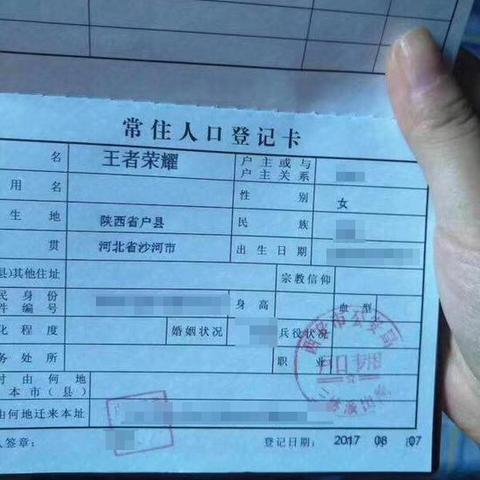 常住人口登记卡
名 王者荣耀 户主或与户主关系
用名 性别 女
生地 陕西省户县 民族
贯 河北省沙河市 出生日期
县)其他住址 宗教信仰
民身份件编号 身高 血型
化程度 婚姻状况 兵役状况
务处所 职业
时由何地本市(县)
由何地迁来本址
人签章: 登记日期: 2017 08 07